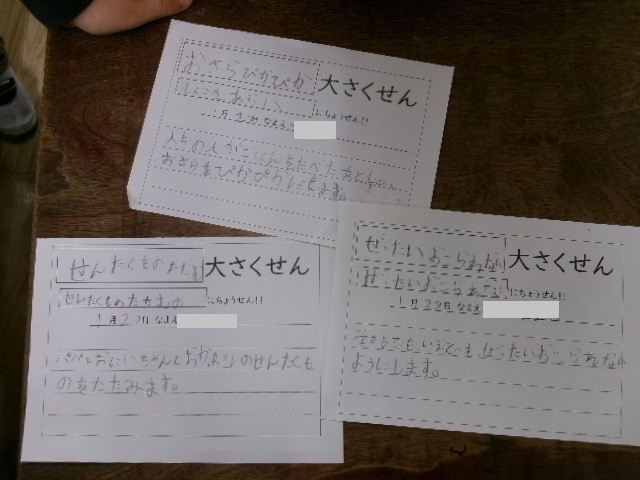 おさらぴかぴか 大さくせん
しょっきあらい にちょうせん!!
月 日 なまえ
うちの人がごはんをたべたあと
おさらをぴかぴかにします。
せんたくものたたむ 大さくせん
せんたくものたたむの にちょうせん!!
1月2 日 なまえ
パパとおにいちゃんとおかあさんのせんたくも
のをたたみます。
ぜったいおこられない 大さくせん
ぜったいおこられない にちょうせん!!
1月22日 なまえ
でも いえでも ぜったいおこられない
ようにします。